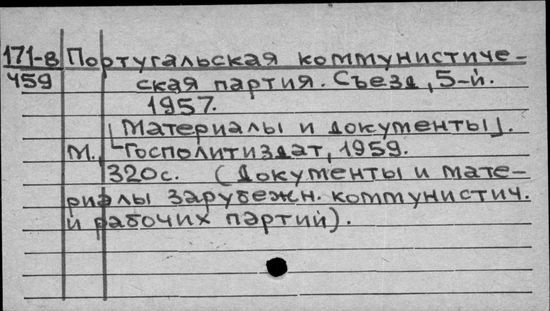 171-8 Португальская коммунистиче-
459 ская партия. Съезд, 5-й.
1957.
[Материалы и документы].
М., Госполитиздат, 1959.
320с. (Документы и мате-
риалы зарубежн. коммунистич.
и рабочих партий).